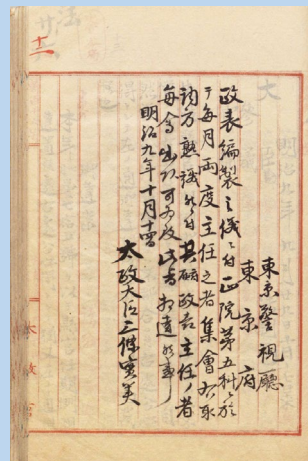 十一
東京警視廳
東京府
政表編製之儀ニ付正院第五科ニ於
テ毎月両度主任之者集會右取
調方熟議候付其廳政表主任ノ者
毎會出頭可為致此旨相達候事
明治九年十月十四日
太政大臣三條實美
太政官